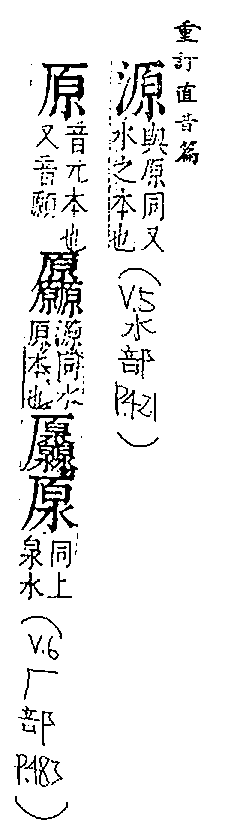 重訂直音篇
源
與原同又
水之本也
(V.5水部P.421)
原
音元本也
又音願
源同水
原本也
厵
厡
同上
泉水
(V.6厂部P.483)